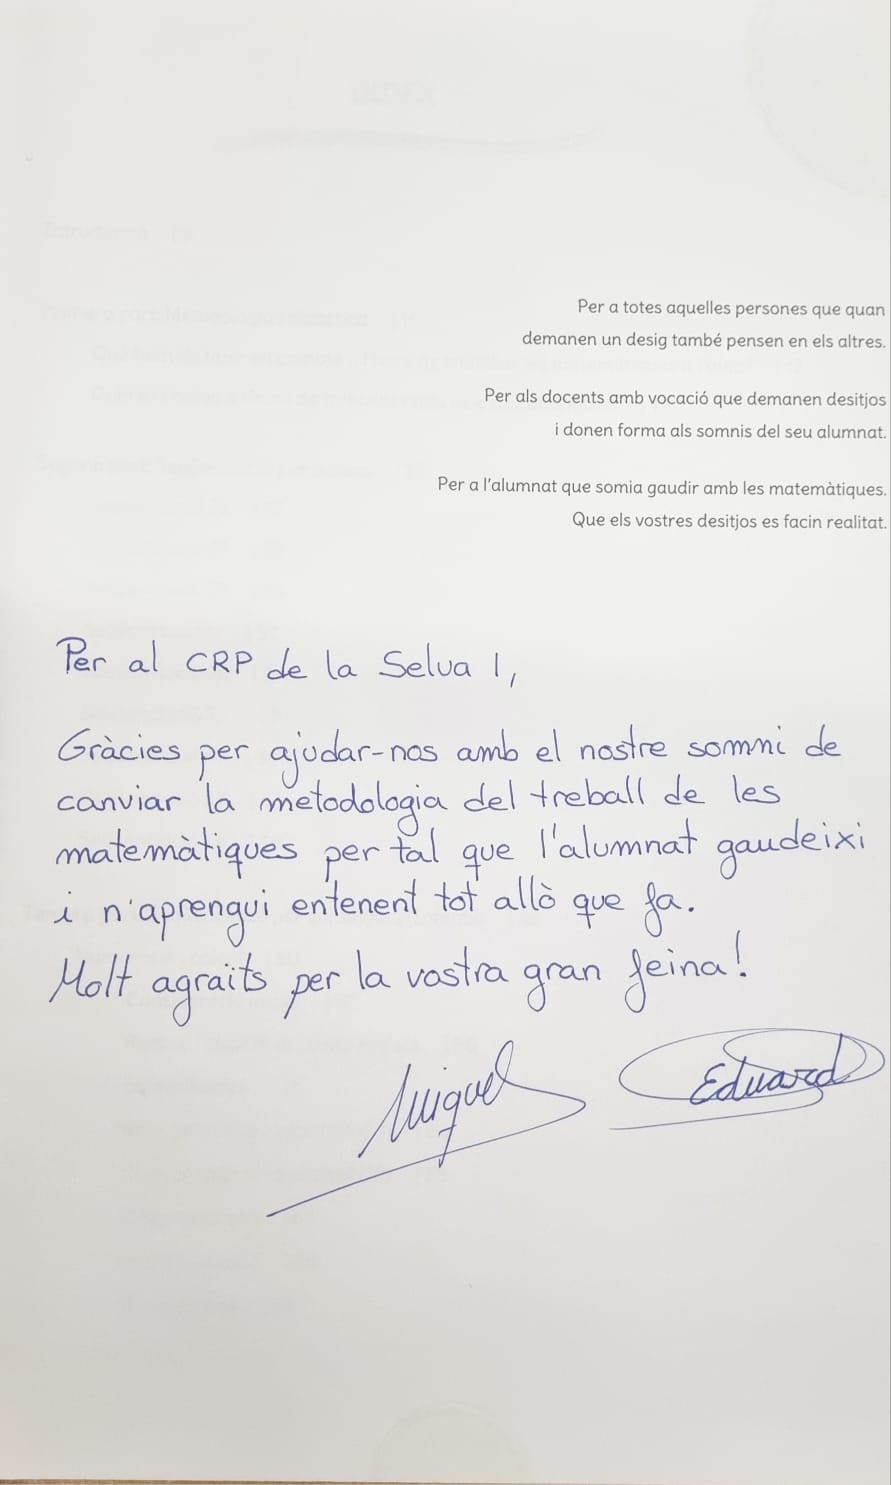 Per a totes aquelles persones que quan
demanen un desig també pensen en els altres.
Per als docents amb vocació que demanen desitjos
i donen forma als somnis del seu alumnat.
Per a l'alumnat que somia gaudir amb les matemàtiques.
Que els vostres desitjos es facin realitat.
Per al CRP de la Selva 1,
Gràcies per ajudar-nos amb el nostre somni de
canviar la metodologia del treball de les
matemàtiques per tal que l'alumnat gaudeixi
i n'aprengui entenent tot allò que fa.
Molt agraits per la vostra gran feina!
Miquel Eduard